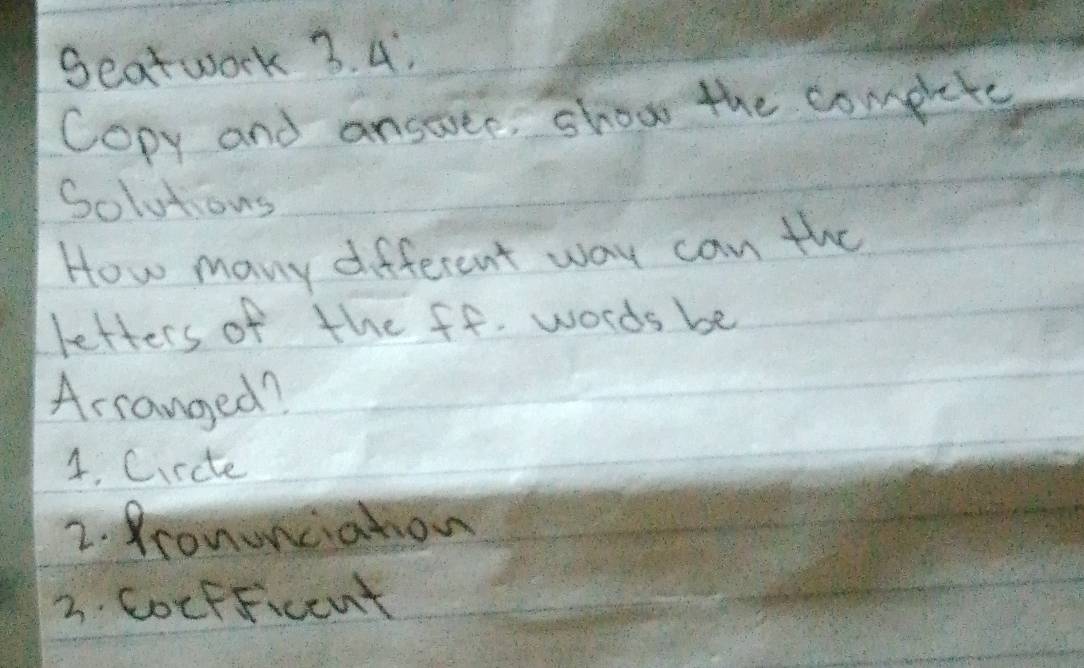 Seatwork 3.4:
Copy and answer. show the complete
Solutions
How many different way can the
letters of the ff. words be
Arranged?
1. Circle
2. Pronunciation
3. Coefficent